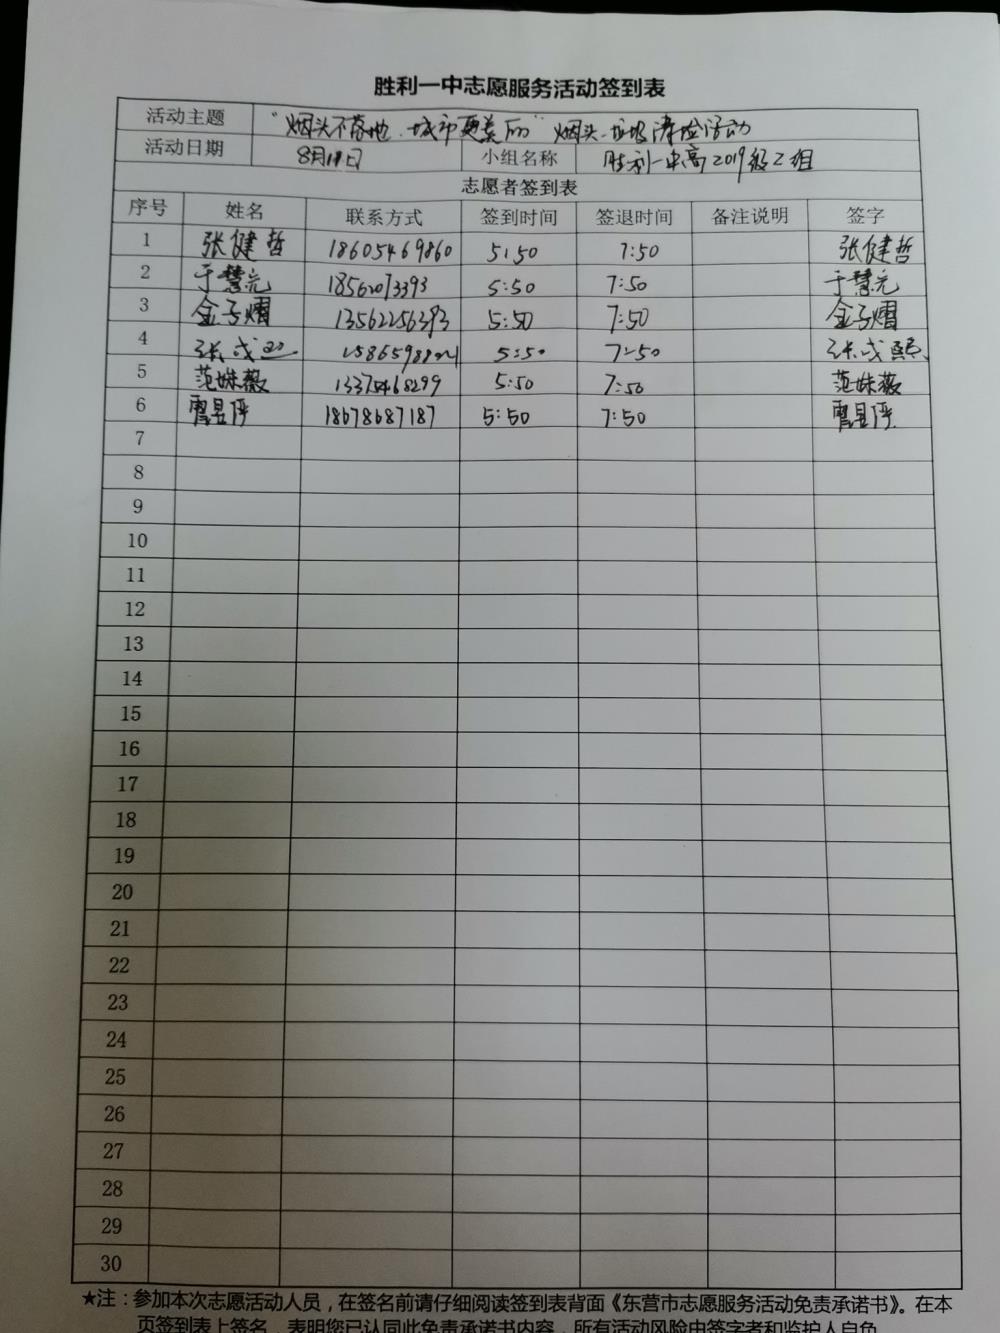 胜利一中志愿服务活动签到表
活动主题 "烟头不落地 城市更美丽" 烟头、垃圾清捡活动
活动日期 8月11日 小组名称 胜利一中高2019级2组
志愿者签到表
序号 姓名 联系方式 签到时间 签退时间 备注说明 签字
1 张健哲 18605469860 5:50 7:50 张健哲
2 于慧元 18562073393 5:50 7:50 于慧元
3 金子熠 13562256393 5:50 7:50 金子熠
4 张成 5:50 7:50 张成熙
5 范姝薇 13375468299 5:50 7:50 范姝薇
6 18678687187 5:50 7:50
7
8
9
10
11
12
13
14
15
16
17
18
19
20
21
22
23
24
25
26
27
28
29
30
★注：参加本次志愿活动人员，在签名前请仔细阅读签到表背面《东营市志愿服务活动免责承诺书》。在本
页签到表上签名，表明您已认同此免责承诺书内容，所有活动风险由签字者和监护人自负